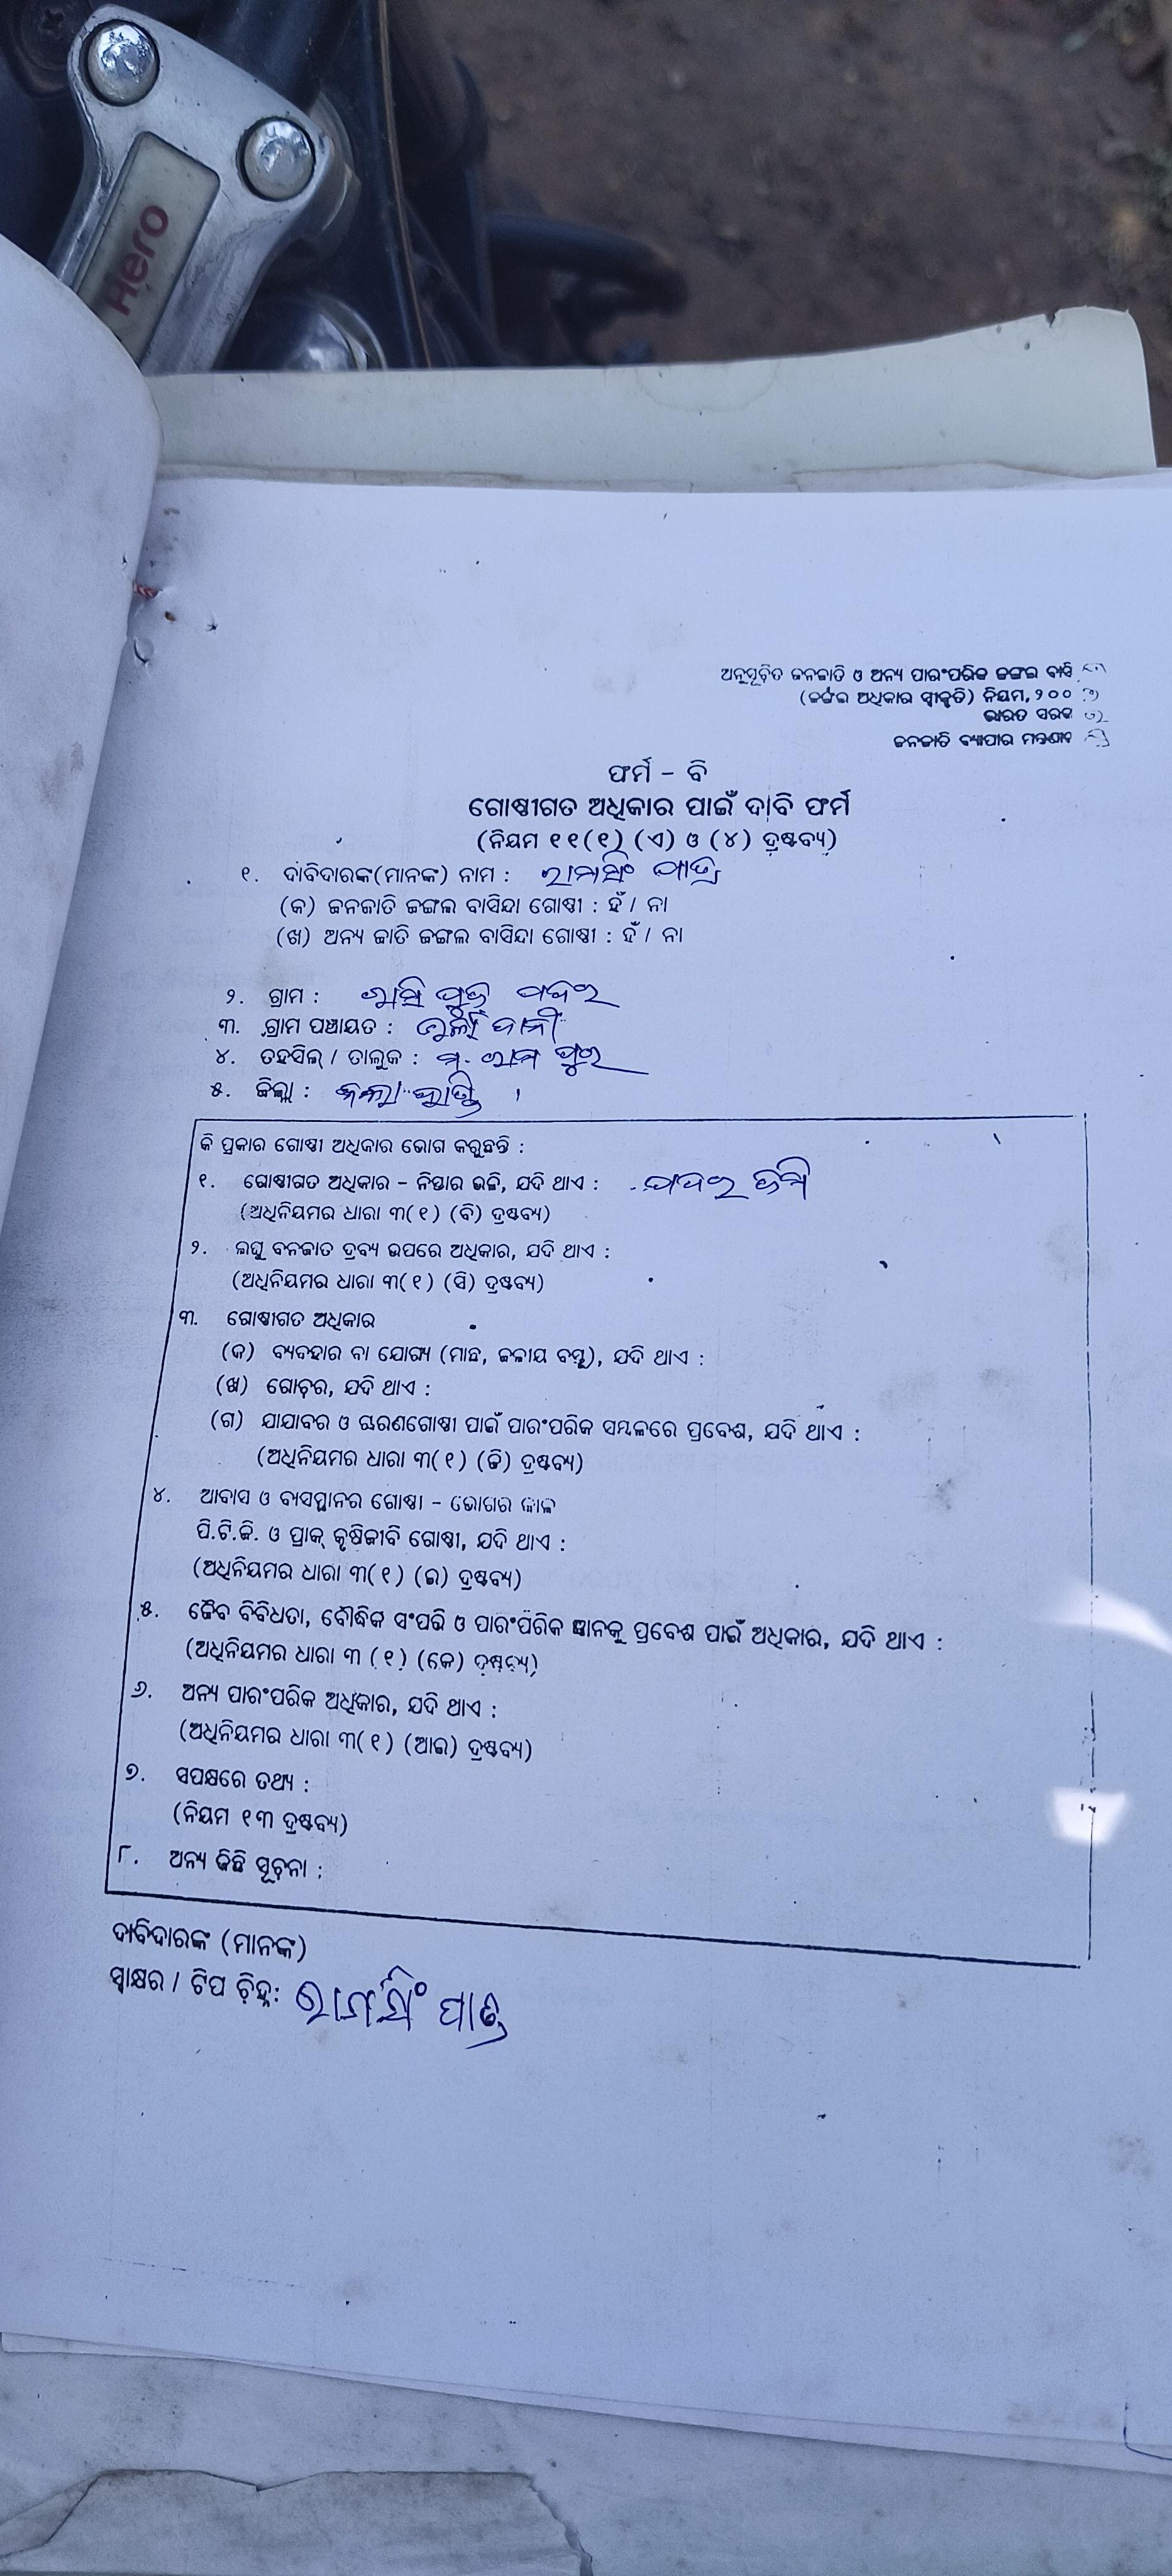 Hero
ଅନୁସୂଚିତ ଜନଜାତି ଓ ଅନ୍ୟ ପାରଂପରିକ ଜଙ୍ଗଲ ବାସି
(ଜଙ୍ଗଲ ଅଧିକାର ସ୍ୱୀକୃତି) ନିୟମ, ୨୦୦
ଭାରତ ସରକ
ଜନଜାତି ବ୍ୟାପାର ମନ୍ତ୍ରଣାଳ
ଫର୍ମ - ବି
ଗୋଷ୍ଠୀଗତ ଅଧିକାର ପାଇଁ ଦାବି ଫର୍ମ
(ନିୟମ ୧୧(୧) (ଏ) ଓ (୪) ଦ୍ରଷ୍ଟବ୍ୟ)
୧. ଦାବିଦାରଙ୍କ(ମାନଙ୍କ) ନାମ : ରାମସିଂ
(କ) ଜନଜାତି ଜଙ୍ଗଲ ବାସିନ୍ଦା ଗୋଷ୍ଠୀ : ହଁ / ନା
(ଖ) ଅନ୍ୟ ଜାତି ଜଙ୍ଗଲ ବାସିନ୍ଦା ଗୋଷ୍ଠୀ : ହଁ / ନା
୨. ଗ୍ରାମ :
୩. ଗ୍ରାମ ପଞ୍ଚାୟତ :
୪. ତହସିଲ୍ / ତାଲୁକ : ମ. ରାମପୁର
୫. ଜିଲ୍ଲା : କଳାହାଣ୍ଡି
କି ପ୍ରକାର ଗୋଷ୍ଠୀ ଅଧିକାର ଭୋଗ କରୁଛନ୍ତି :
୧. ଗୋଷ୍ଠୀଗତ ଅଧିକାର - ନିସ୍ତାର ଭଳି, ଯଦି ଥାଏ : ପଦର ଜମି
(ଅଧିନିୟମର ଧାରା ୩(୧) (ବି) ଦ୍ରଷ୍ଟବ୍ୟ)
୨. ଲଘୁ ବନଜାତ ଦ୍ରବ୍ୟ ଉପରେ ଅଧିକାର, ଯଦି ଥାଏ :
(ଅଧିନିୟମର ଧାରା ୩(୧) (ସି) ଦ୍ରଷ୍ଟବ୍ୟ)
୩. ଗୋଷ୍ଠୀଗତ ଅଧିକାର
(କ) ବ୍ୟବହାର ବା ଯୋଗ୍ୟ (ମାଛ, ଜଳୀୟ ବସ୍ତୁ), ଯଦି ଥାଏ :
(ଖ) ଗୋଚର, ଯଦି ଥାଏ :
(ଗ) ଯାଯାବର ଓ ଚାରଣଗୋଷ୍ଠୀ ପାଇଁ ପାରଂପରିକ ସମ୍ବଳରେ ପ୍ରବେଶ, ଯଦି ଥାଏ :
(ଅଧିନିୟମର ଧାରା ୩(୧) (ଡି) ଦ୍ରଷ୍ଟବ୍ୟ)
୪. ଆବାସ ଓ ବାସସ୍ଥାନର ଗୋଷ୍ଠୀ - ଭୋଗର କାଳ
ପି.ଟି.ଜି. ଓ ପ୍ରାକ୍ କୃଷିଜୀବି ଗୋଷ୍ଠୀ, ଯଦି ଥାଏ :
(ଅଧିନିୟମର ଧାରା ୩(୧) (ଇ) ଦ୍ରଷ୍ଟବ୍ୟ)
୫. ଜୈବ ବିବିଧତା, ବୌଦ୍ଧିକ ସଂପତ୍ତି ଓ ପାରଂପରିକ ଜ୍ଞାନକୁ ପ୍ରବେଶ ପାଇଁ ଅଧିକାର, ଯଦି ଥାଏ :
(ଅଧିନିୟମର ଧାରା ୩ (୧) (କେ) ଦ୍ରଷ୍ଟବ୍ୟ)
୬. ଅନ୍ୟ ପାରଂପରିକ ଅଧିକାର, ଯଦି ଥାଏ :
(ଅଧିନିୟମର ଧାରା ୩(୧) (ଆଇ) ଦ୍ରଷ୍ଟବ୍ୟ)
୭. ସପକ୍ଷରେ ତଥ୍ୟ :
(ନିୟମ ୧୩ ଦ୍ରଷ୍ଟବ୍ୟ)
୮. ଅନ୍ୟ କିଛି ସୂଚନା :
ଦାବିଦାରଙ୍କ (ମାନଙ୍କ)
ସ୍ୱାକ୍ଷର / ଟିପ ଚିହ୍ନ: ରାମସିଂ